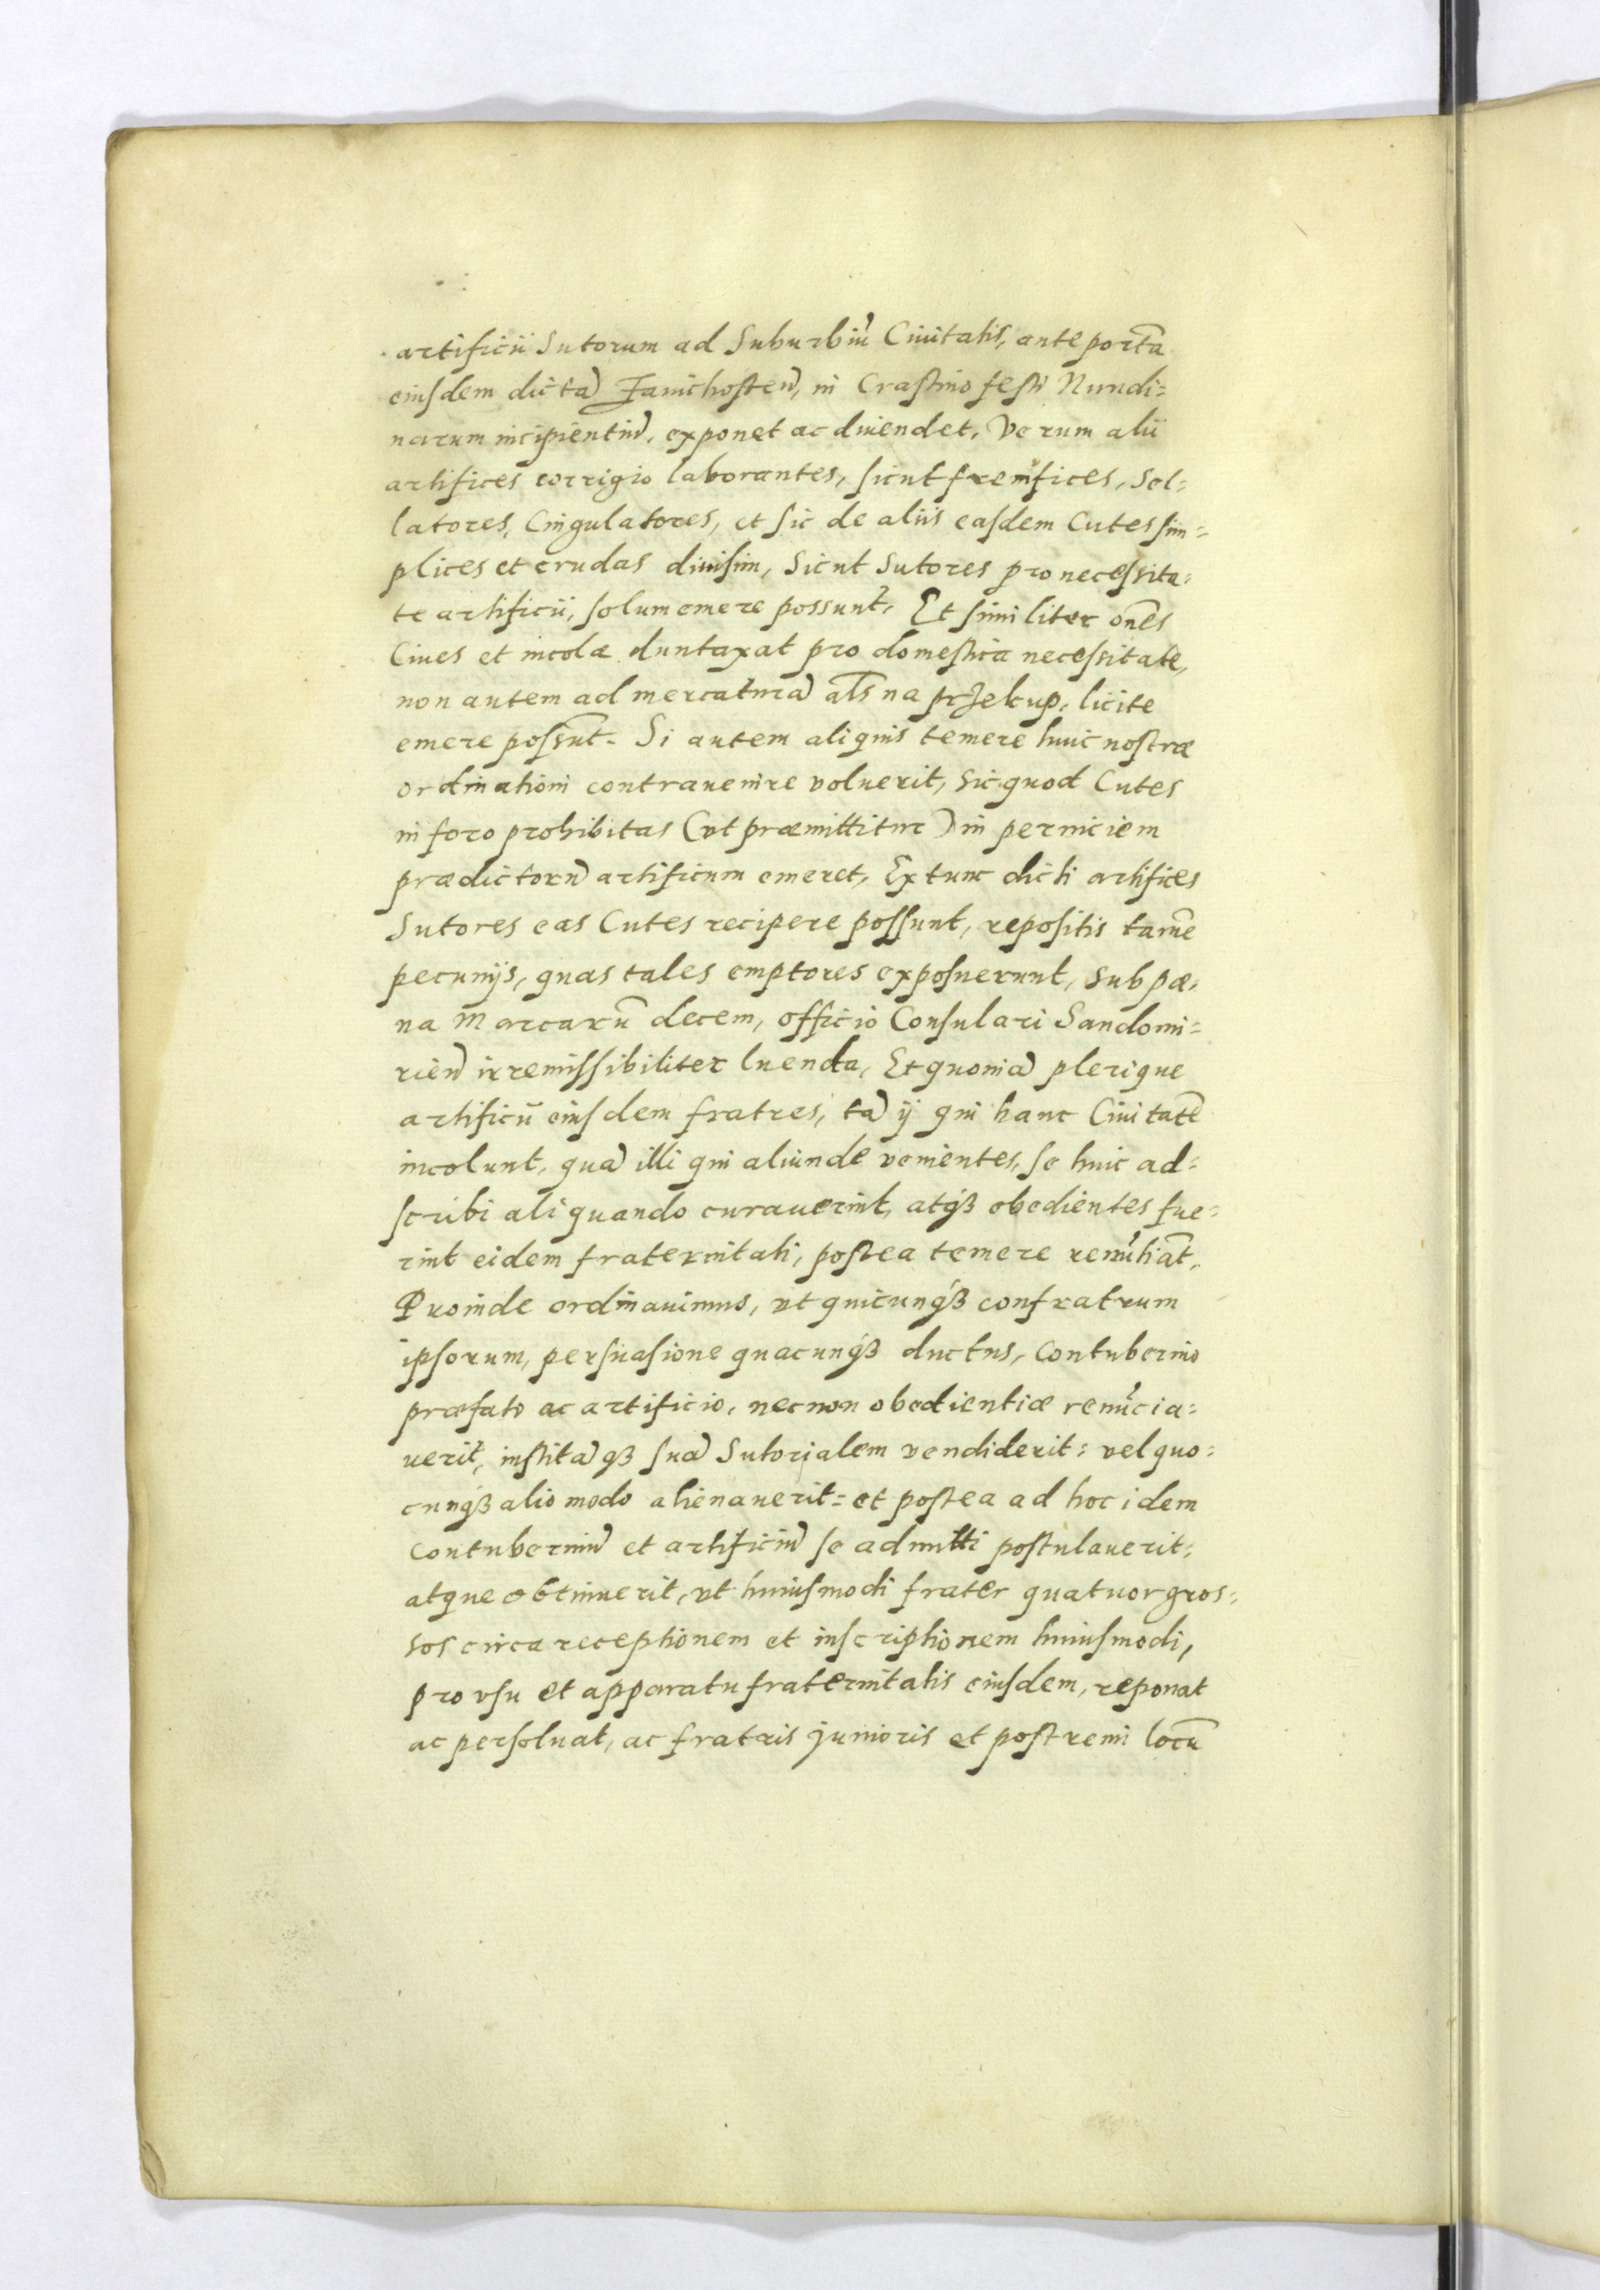 artificii Sutorum ad Suburbiũ Ciuitatis, ante portã
eiusdem dictã Zauichosteñ, in Crastino festi Nundi=
narum incipientiũ, exponet ac diuendet. Verum alii
artifices corrigio laborantes, sicut frenifices, Sel=
latores, Cingulatores, et sic de aliis easdem Cutes sim=
plices et crudas diuisim, Sicut Sutores pro necessita=
te artificii, solum emere possunt. Et similiter om̃es
Ciues et incolæ duntaxat pro domestica necessitate,
non autem ad mercaturã al̃s na przekup, licite
emere possũt. Si autem aliquis temere huic nostræ
ordinationi contrauenire voluerit, sic quod Cutes
in foro prohibitas (vt præmittitur) in perniciem
prædictorũ artificum emeret, Extunc dicti artifices
Sutores eas Cutes recipere possunt, repositis tamẽ
pecunijs, quas tales emptores exposuerunt, sub pæ=
na Marcarũ decem, officio Consulari Sandomi=
rieñ irremissibiliter luenda, Et quoniã plerique
artificii eiusdem fratres, tã ij qui hanc Ciuitatẽ
incolunt, quã illi qui aliunde venientes, se huic ad=
scribi aliquando curauerint, atq3 obedientes fue=
rint eidem fraternitati, postea temere renũtiãt,
Proinde ordinauimus, vt quicunq3 confratrum
ipsorum, persuasione quacunq3 ductus, Contubernio
præfato ac artificio, necnon obedientiæ renũcia=
uerit, institãq3 suã Sutorialem vendiderit: vel quo=
cunq3 alio modo alienauerit: et postea ad hoc idem
Contuberniũ et artificiũ se admitti postulauerit:
atque obtinuerit, vt huiusmodi frater quatuor gros=
sos circa receptionem et inscriptionem huiusmodi,
pro vsu et apparatu fraternitatis eiusdem, reponat
ac persoluat, ac fratris junioris et postremi locũ